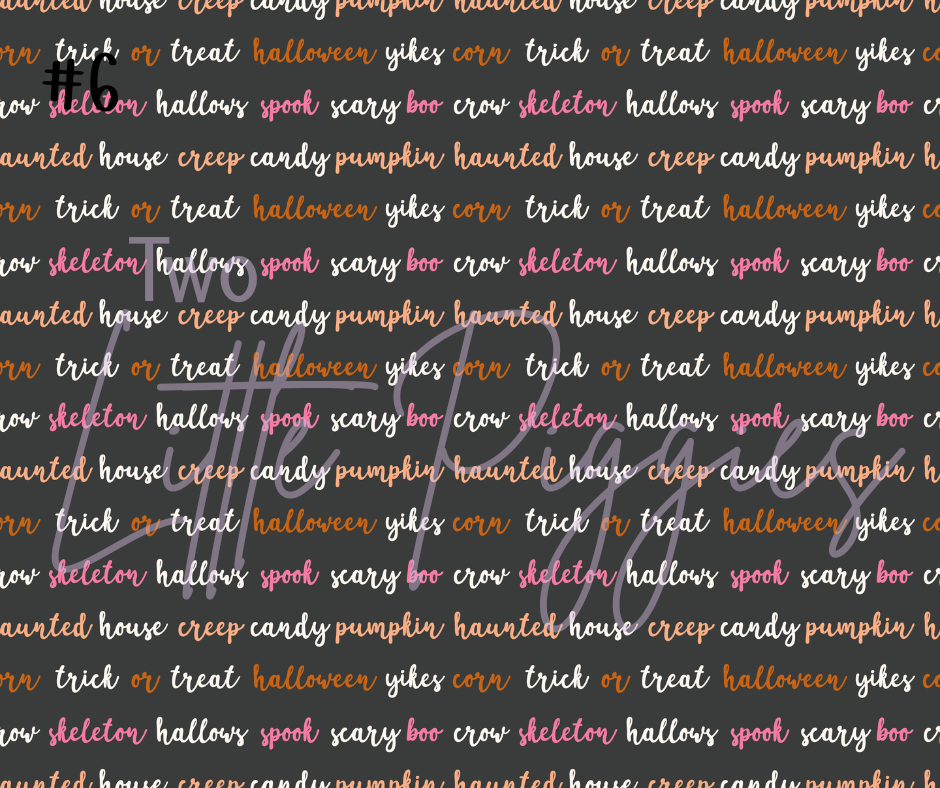 haunted house creep candy pumpkin haunted house creep candy pumpkin h
orn trick or treat halloween yikes corn trick or treat halloween yikes co
#6
row skeleton hallows spook scary boo crow skeleton hallows spook scary boo cr
aunted house creep candy pumpkin haunted house creep candy pumpkin h
orn trick or treat halloween yikes corn trick or treat halloween yikes co
row skeleton hallows spook scary boo crow skeleton hallows spook scary boo cr
Two
aunted house creep candy pumpkin haunted house creep candy pumpkin h
orn trick or treat halloween yikes corn trick or treat halloween yikes co
row skeleton hallows spook scary boo crow skeleton hallows spook scary boo cr
Little Piggies
aunted house creep candy pumpkin haunted house creep candy pumpkin h
orn trick or treat halloween yikes corn trick or treat halloween yikes co
row skeleton hallows spook scary boo crow skeleton hallows spook scary boo cr
aunted house creep candy pumpkin haunted house creep candy pumpkin h
orn trick or treat halloween yikes corn trick or treat halloween yikes co
row skeleton hallows spook scary boo crow skeleton hallows spook scary boo cr
aunted house creep candy pumpkin haunted house creep candy pumpkin h